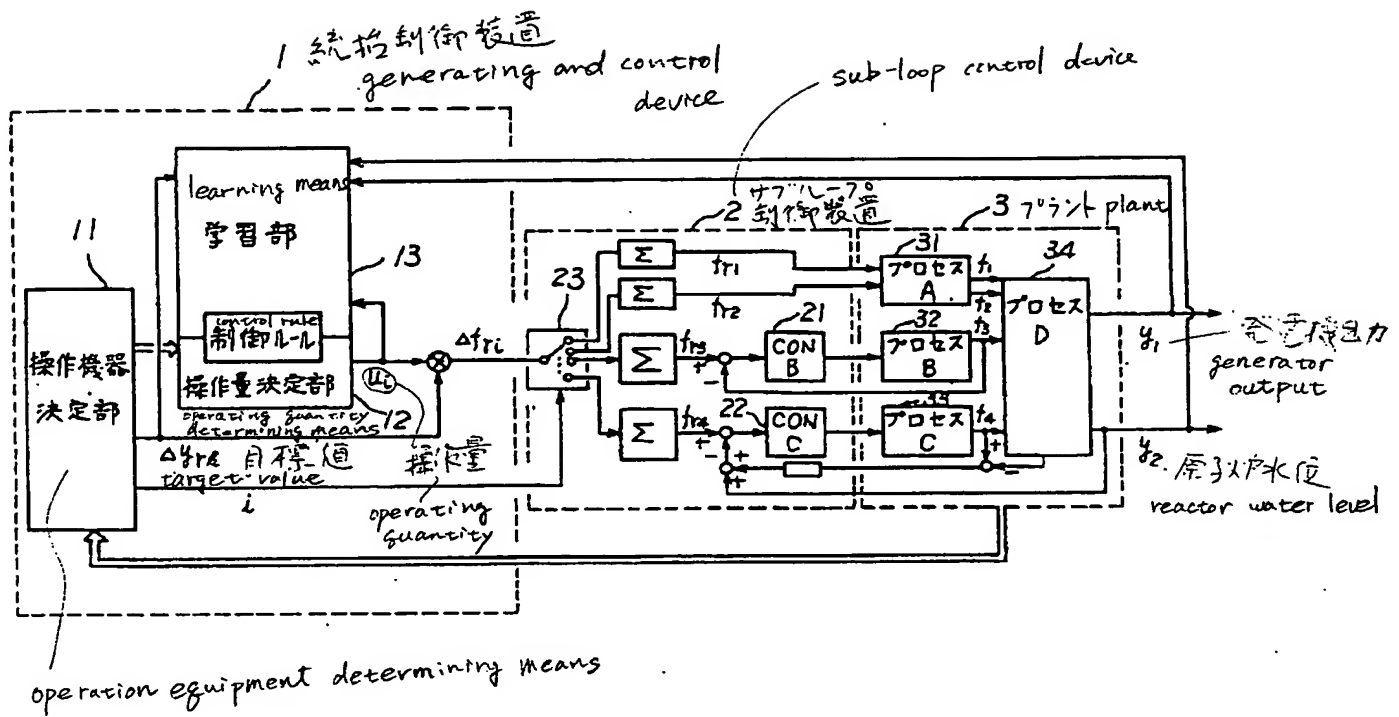 1 統括制御装置
generating and control
device
sub-loop control device
learning means
学習部
13
11
操作機器
決定部
control rule
制御ルール
操作量決定部
12
operating quantity
determining means
Δyrk 目標値
target value
i
ui
操作量
operating
quantity
Δfri
23
2 サブループ
制御装置
Σ
fr1
Σ
fr2
Σ
fr3
+
-
21
CON
B
Σ
fr4
+
-
22
CON
C
+
+
3 プラント plant
31
プロセス
A
f1
f2
32
プロセス
B
f3
プロセス
C
f4
+
-
34
プロセス
D
y1
generator
output
y2
原子炉水位
reactor water level
operation equipment determining means